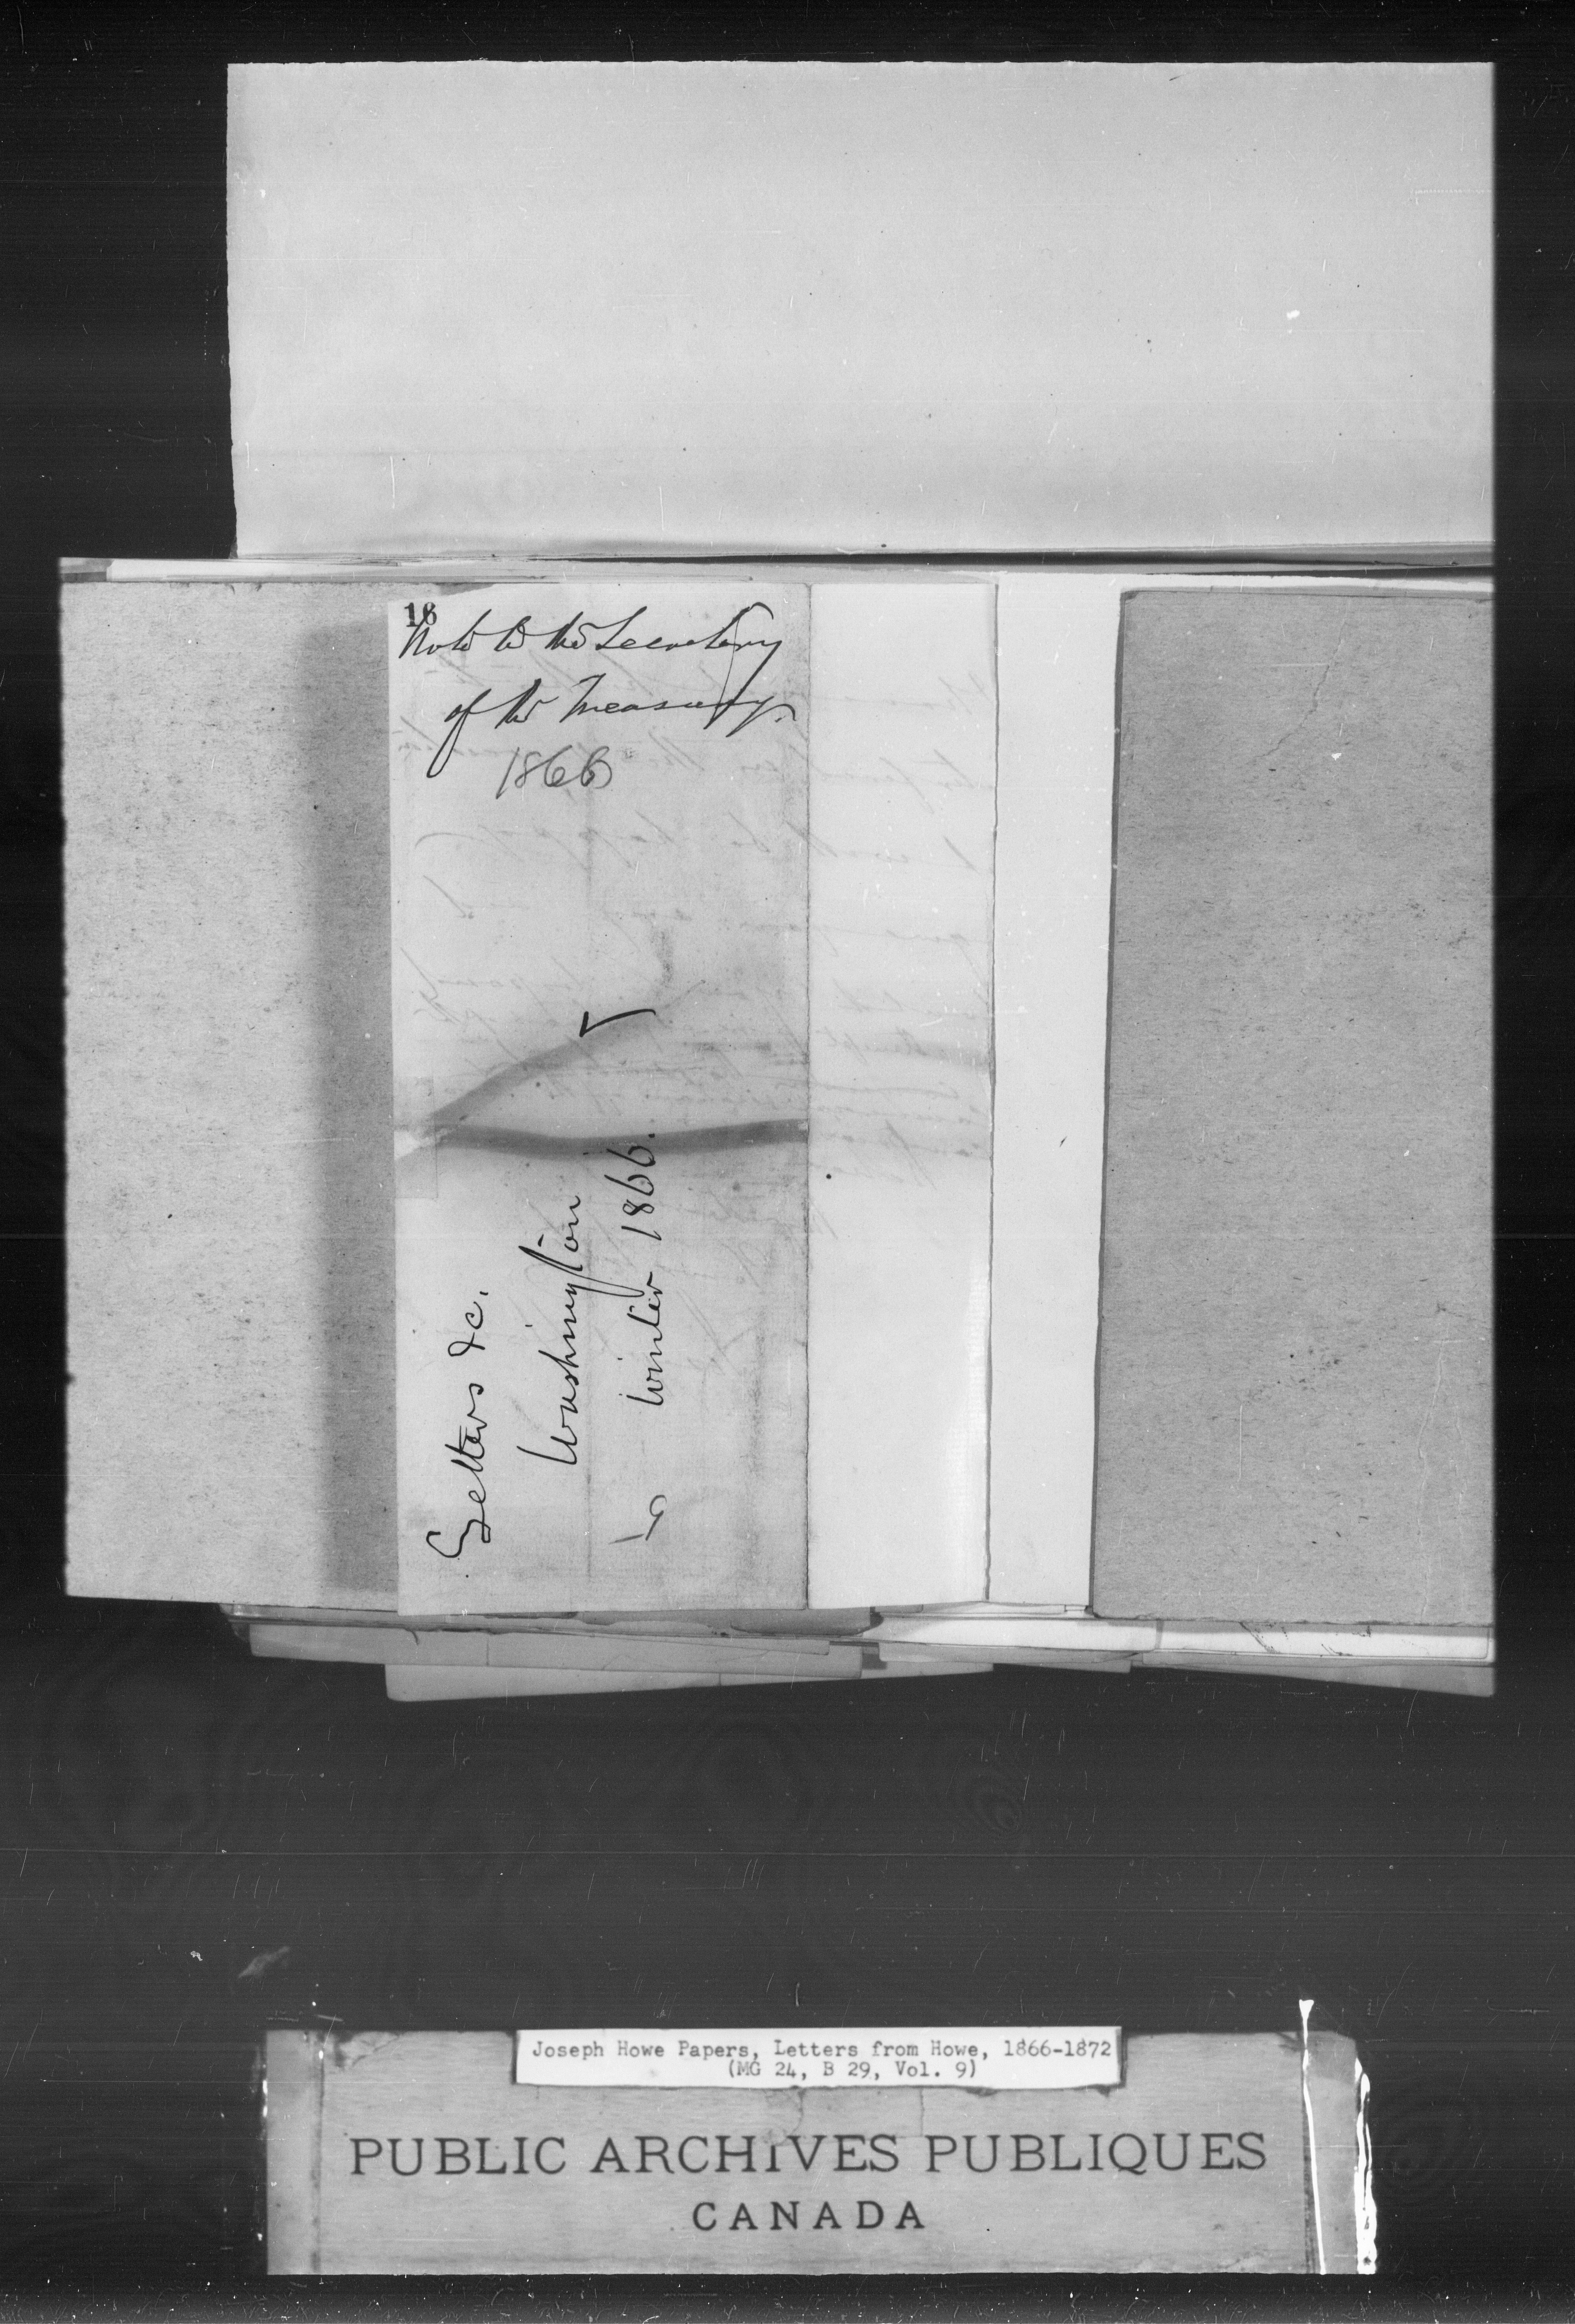 18
Note to the Secretary
of the Treasury.
1866
Letters &c.
Washington
Winter 1866.
Joseph Howe Papers, Letters from Howe, 1866-1872
(MG 24, B 29, Vol. 9)
PUBLIC ARCHIVES PUBLIQUES
CANADA